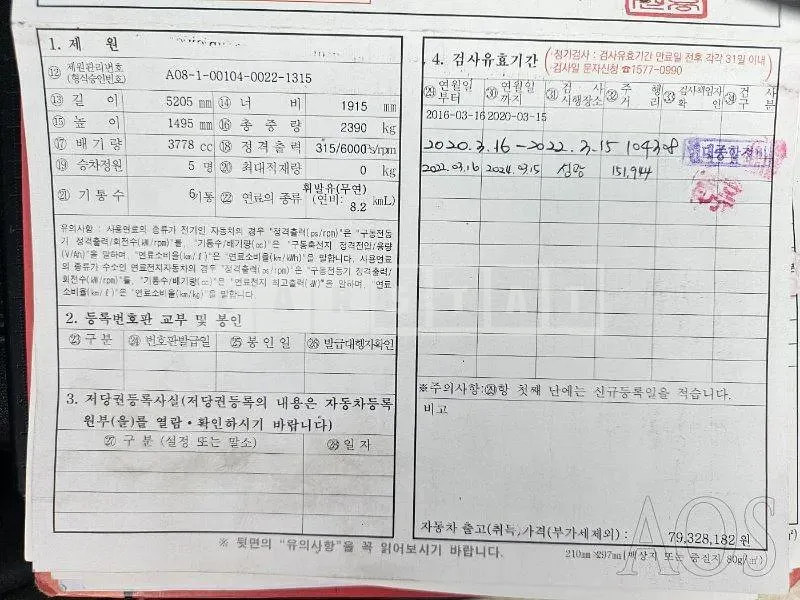 1. 제 원
⑫ 제원관리번호 (형식승인번호) A08-1-00104-0022-1315
⑬ 길 이 5205 mm ⑭ 너 비 1915 mm
⑮ 높 이 1495 mm ⑯ 총 중 량 2390 kg
⑰ 배 기 량 3778 cc ⑱ 정격출력 315/6000 ps/rpm
⑲ 승차정원 5 명 ⑳ 최대적재량 0 kg
㉑ 기 통 수 6기통 ㉒ 연료의 종류 휘발유(무연) (연비: 8.2 km/L)
유의사항 : 사용연료의 종류가 전기인 자동차의 경우 "정격출력(ps/rpm)"은 "구동전동
기 정격출력/회전수(㎾/rpm)"를, "기통수/배기량(cc)"은 "구동축전지 정격전압/용량
(V/Ah)"을 말하며, "연료소비율(㎞/ℓ)"은 "연료소비율(㎞/kWh)"을 말합니다. 사용연료
의 종류가 수소인 연료전지자동차의 경우 "정격출력(ps/rpm)"은 "구동전동기 정격출력/
회전수(㎾/rpm)"를, "기통수/배기량(cc)"은 "연료전지 최고출력(㎾)"을 말하며, "연료
소비율(㎞/ℓ)"은 "연료소비율(㎞/kg)"을 말합니다.
2. 등록번호판 교부 및 봉인
㉓ 구 분 ㉔ 번호판발급일 ㉕ 봉 인 일 ㉖ 발급대행자확인
3. 저당권등록사실(저당권등록의 내용은 자동차등록
원부(을)를 열람·확인하시기 바랍니다)
㉗ 구 분 (설정 또는 말소) ㉘ 일 자
※ 뒷면의 "유의사항"을 꼭 읽어보시기 바랍니다.
4. 검사유효기간
·정기검사 : 검사유효기간 만료일 전후 각각 31일 이내
·검사일 문자신청 ☎1577-0990
㉙ 연월일 부터 ㉚ 연월일 까지 ㉛ 검 사 시행장소 ㉜ 주 행 거 리 ㉝ 검사책임자 확 인 ㉞ 검 사 구 분
2016-03-16 2020-03-15
2020.3.16 - 2022.3.15 104308
2022.03.16 2024.03.15 151,944
※주의사항:㉙항 첫째 난에는 신규등록일을 적습니다.
비고
자동차 출고(취득)가격(부가세제외) : 79,328,182 원
210㎜×297㎜(백상지 또는 중질지 80g/㎡)
AOS